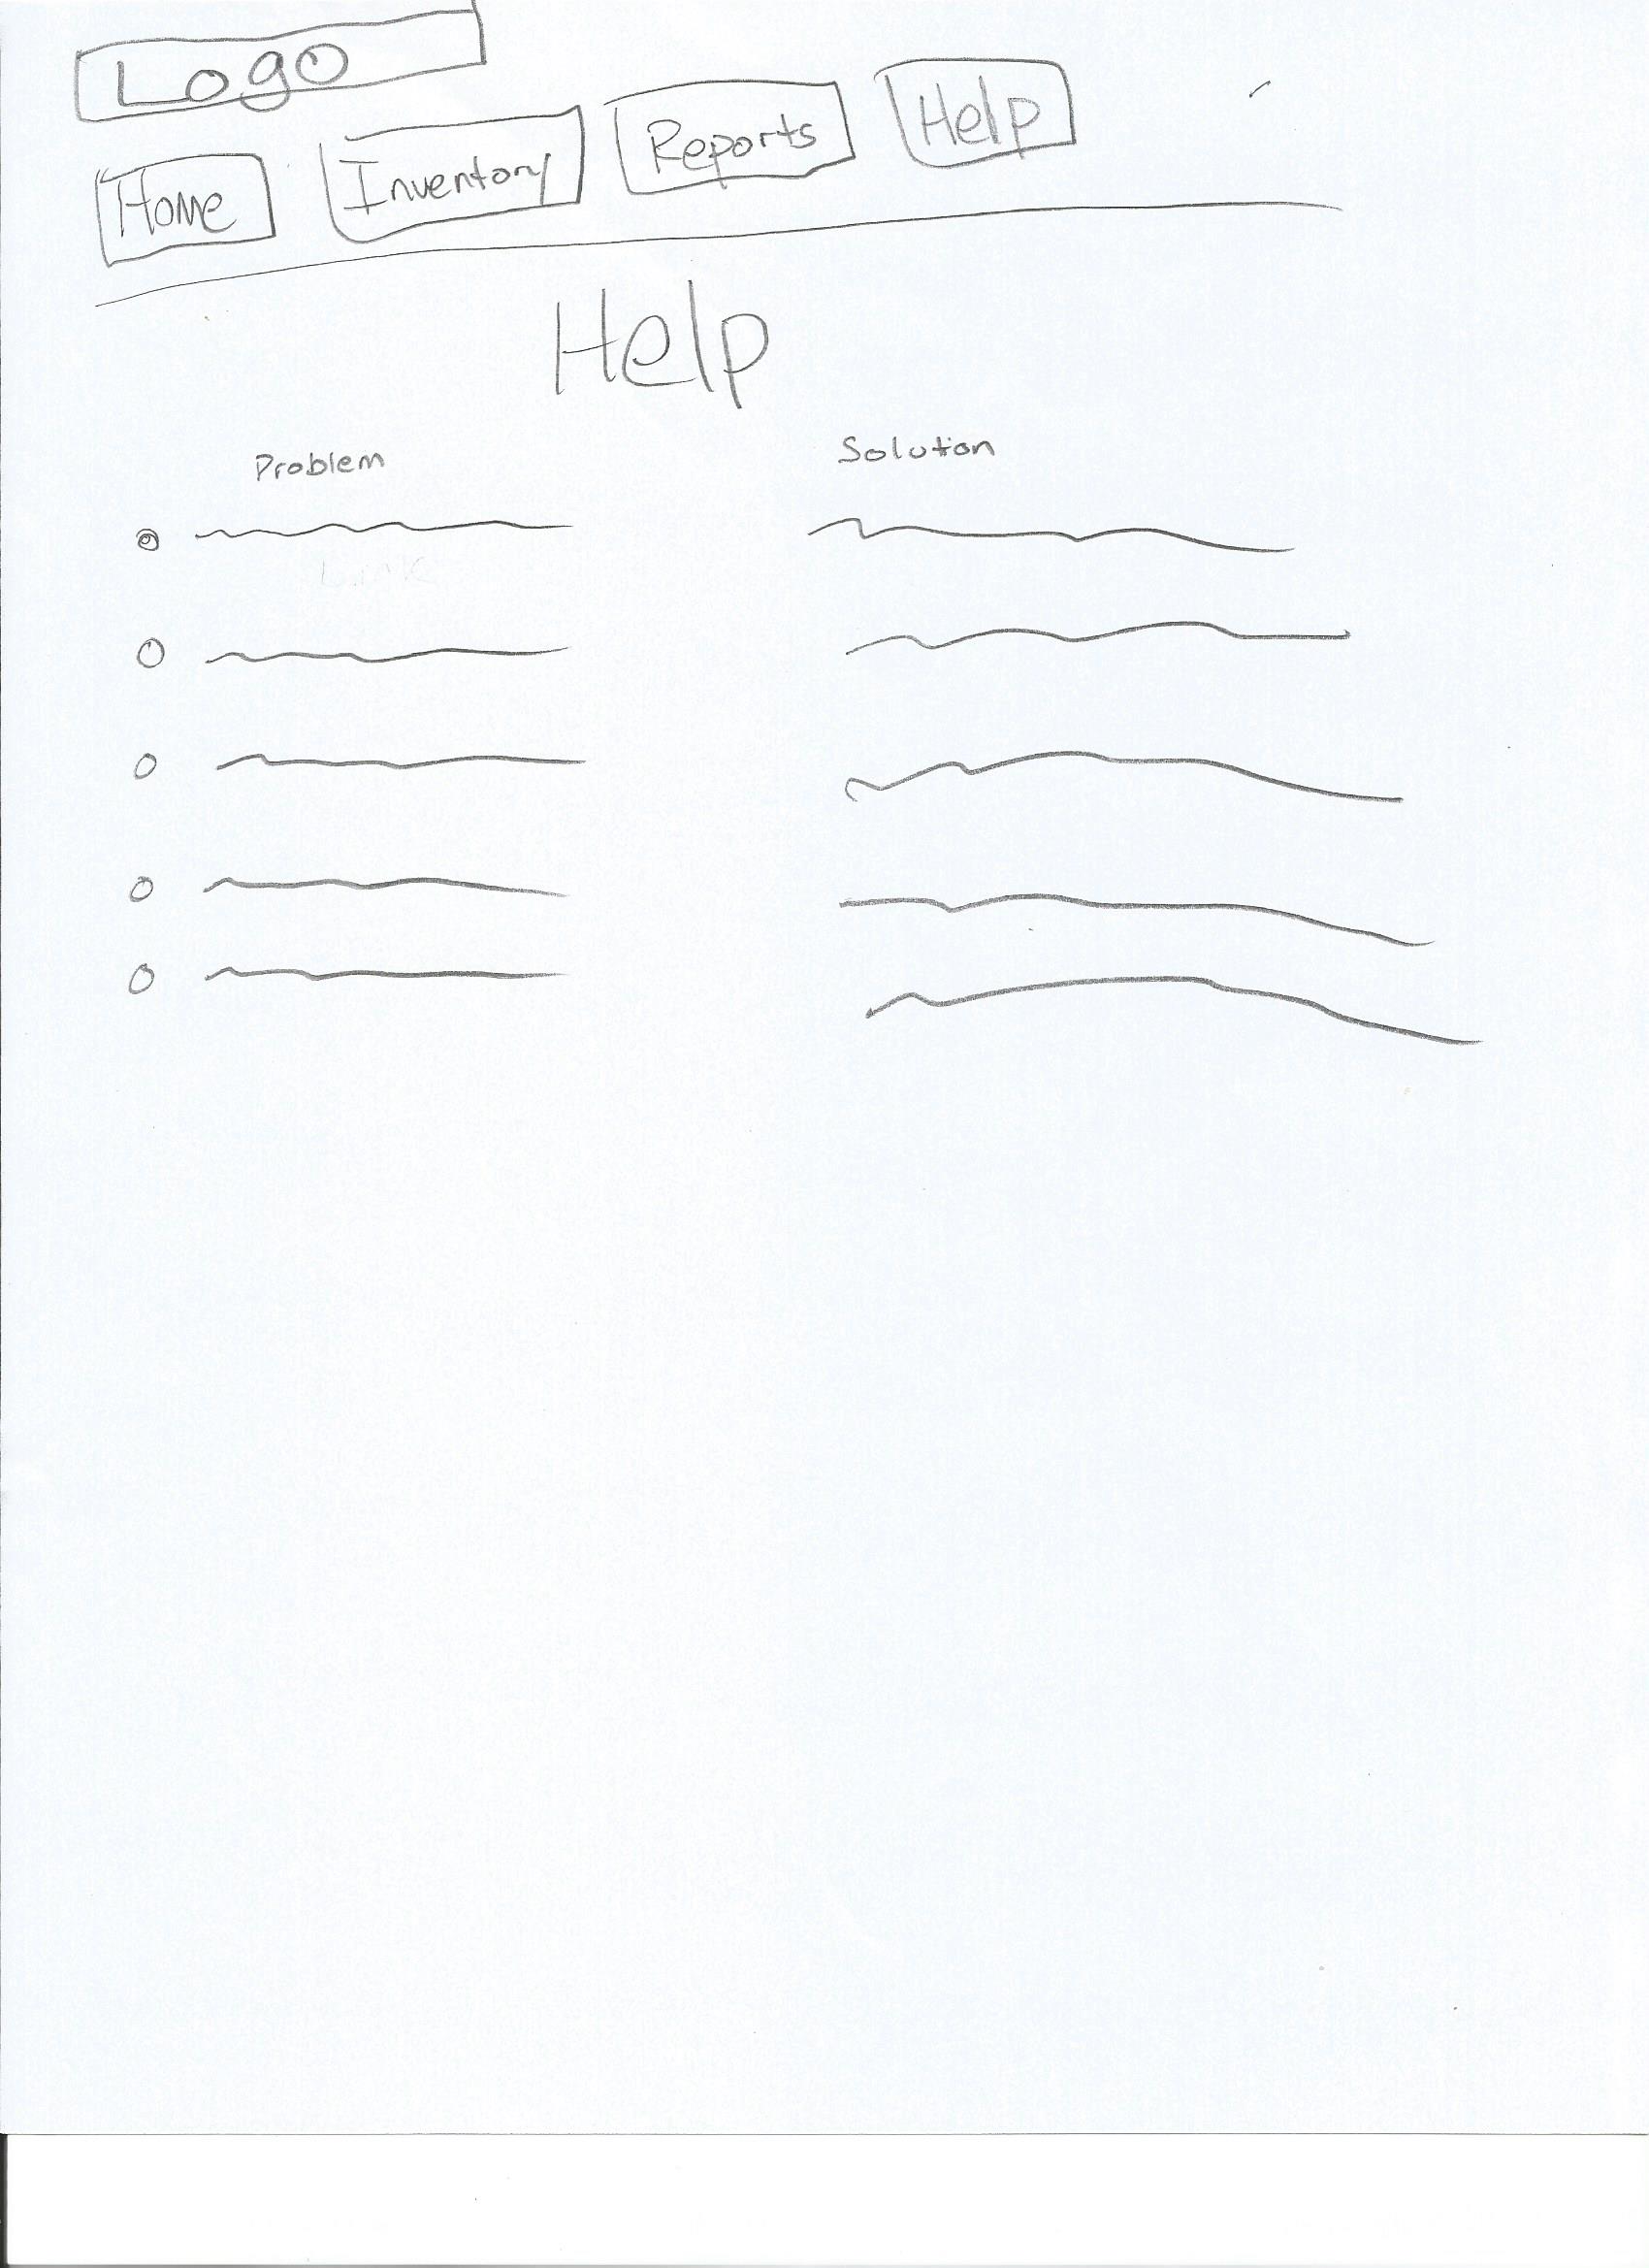 Logo
Home Inventory Reports Help
Help
Problem Solution
Link